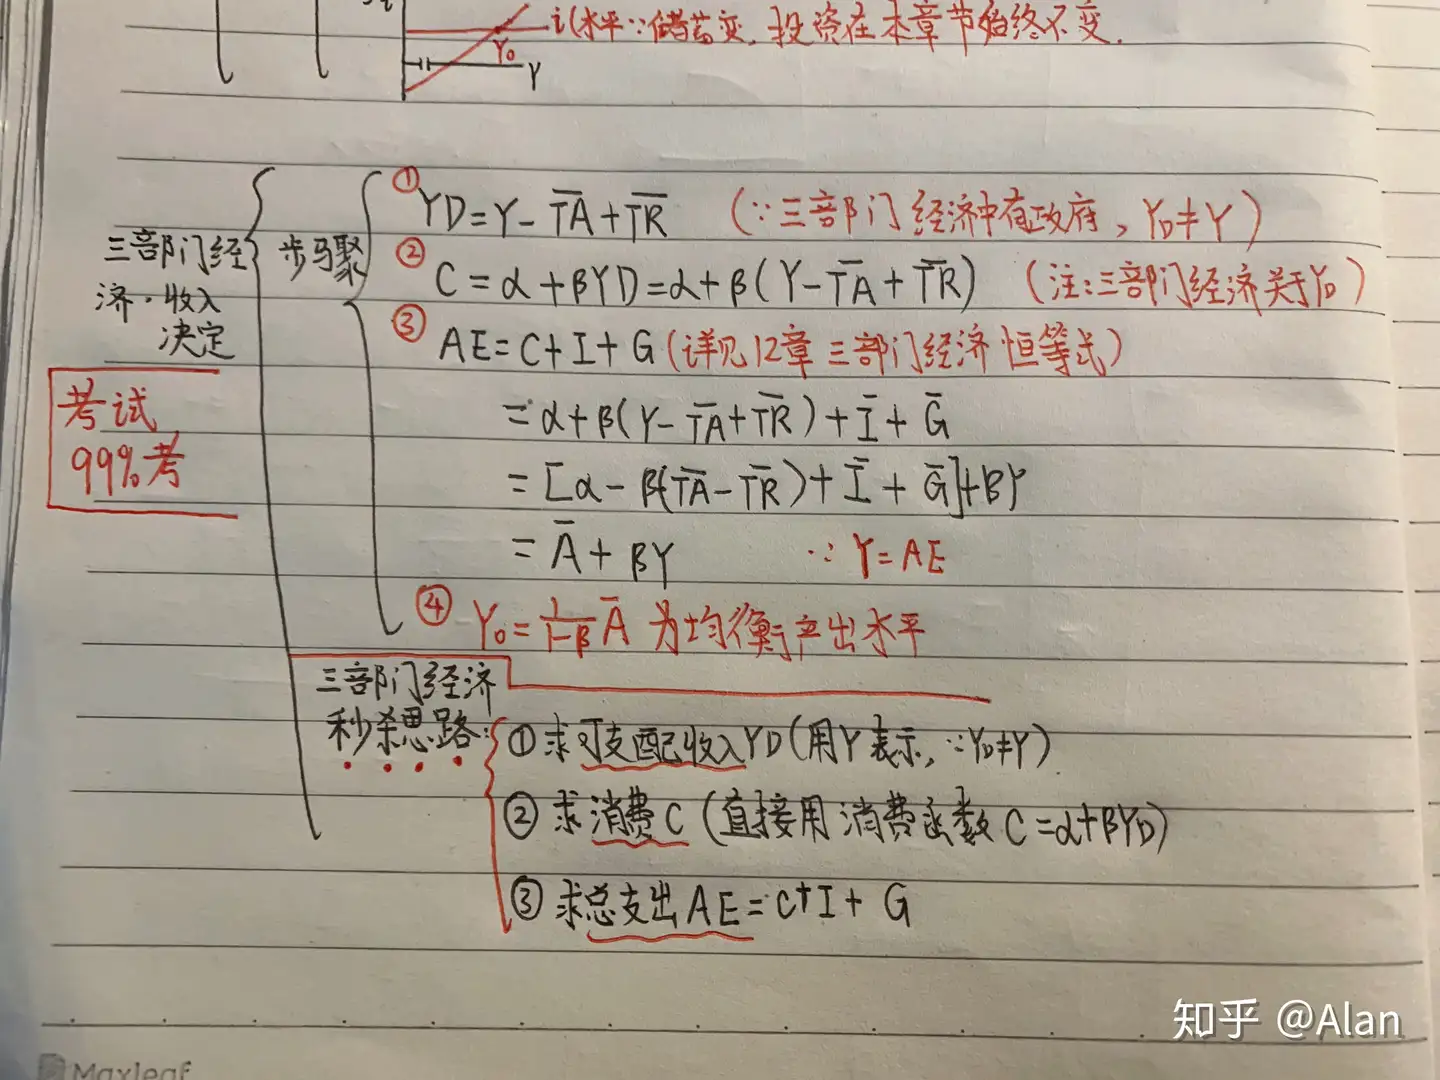 i(水平∵储蓄变,投资在本章节始终不变.
Y₀
Y
三部门经
济·收入
决定
考试
99%考
步骤
① YD=Y-T̅A̅+T̅R̅ (∵三部门经济中有政府,Y_D≠Y)
② C=α+βYD=α+β(Y-T̅A̅+T̅R̅) (注:三部门经济关于Y_D)
③ AE=C+I+G(详见12章三部门经济恒等式)
=α+β(Y-T̅A̅+T̅R̅)+I̅+G̅
=[α-β(T̅A̅-T̅R̅)+I̅+G̅]+βY
=A̅+βY ∵Y=AE
④ Y₀=1/(1-β) A̅ 为均衡产出水平
三部门经济
秒杀思路:
①求可支配收入YD(用Y表示,∵Y_D≠Y)
②求消费C(直接用消费函数C=α+βY_D)
③求总支出AE=C+I+G
知乎 @Alan
Maxleaf